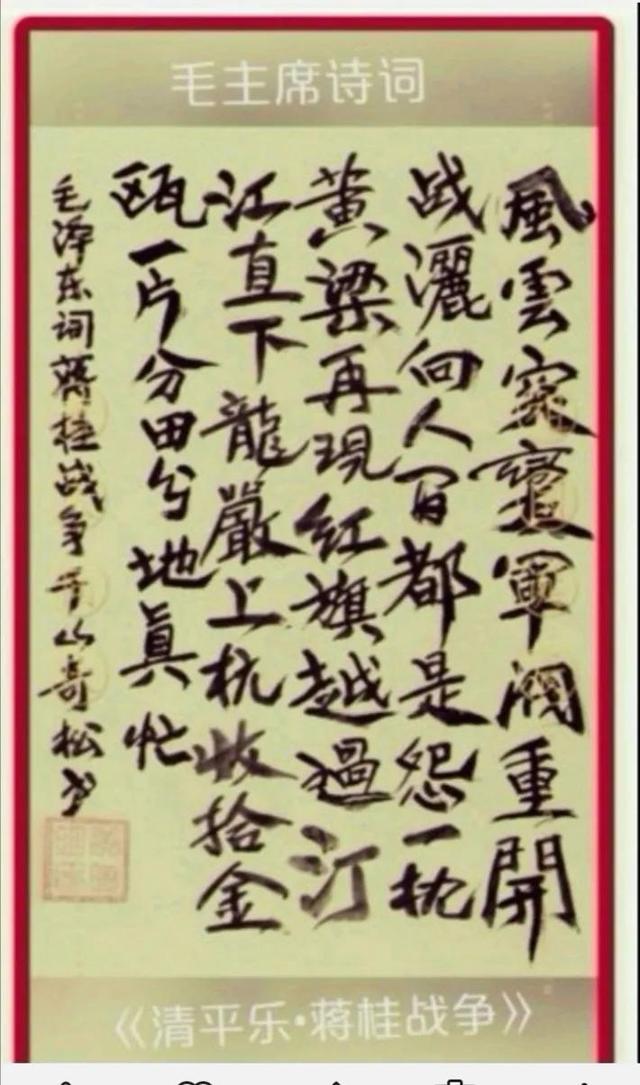 毛主席诗词
風雲突變軍閥重開
战灑向人间都是怨一枕
黄梁再現红旗越過汀
江直下龍嚴上杭收拾金
瓯一片分田分地眞忙
毛泽东词蒋桂战争千山奇松书
《清平乐·蒋桂战争》